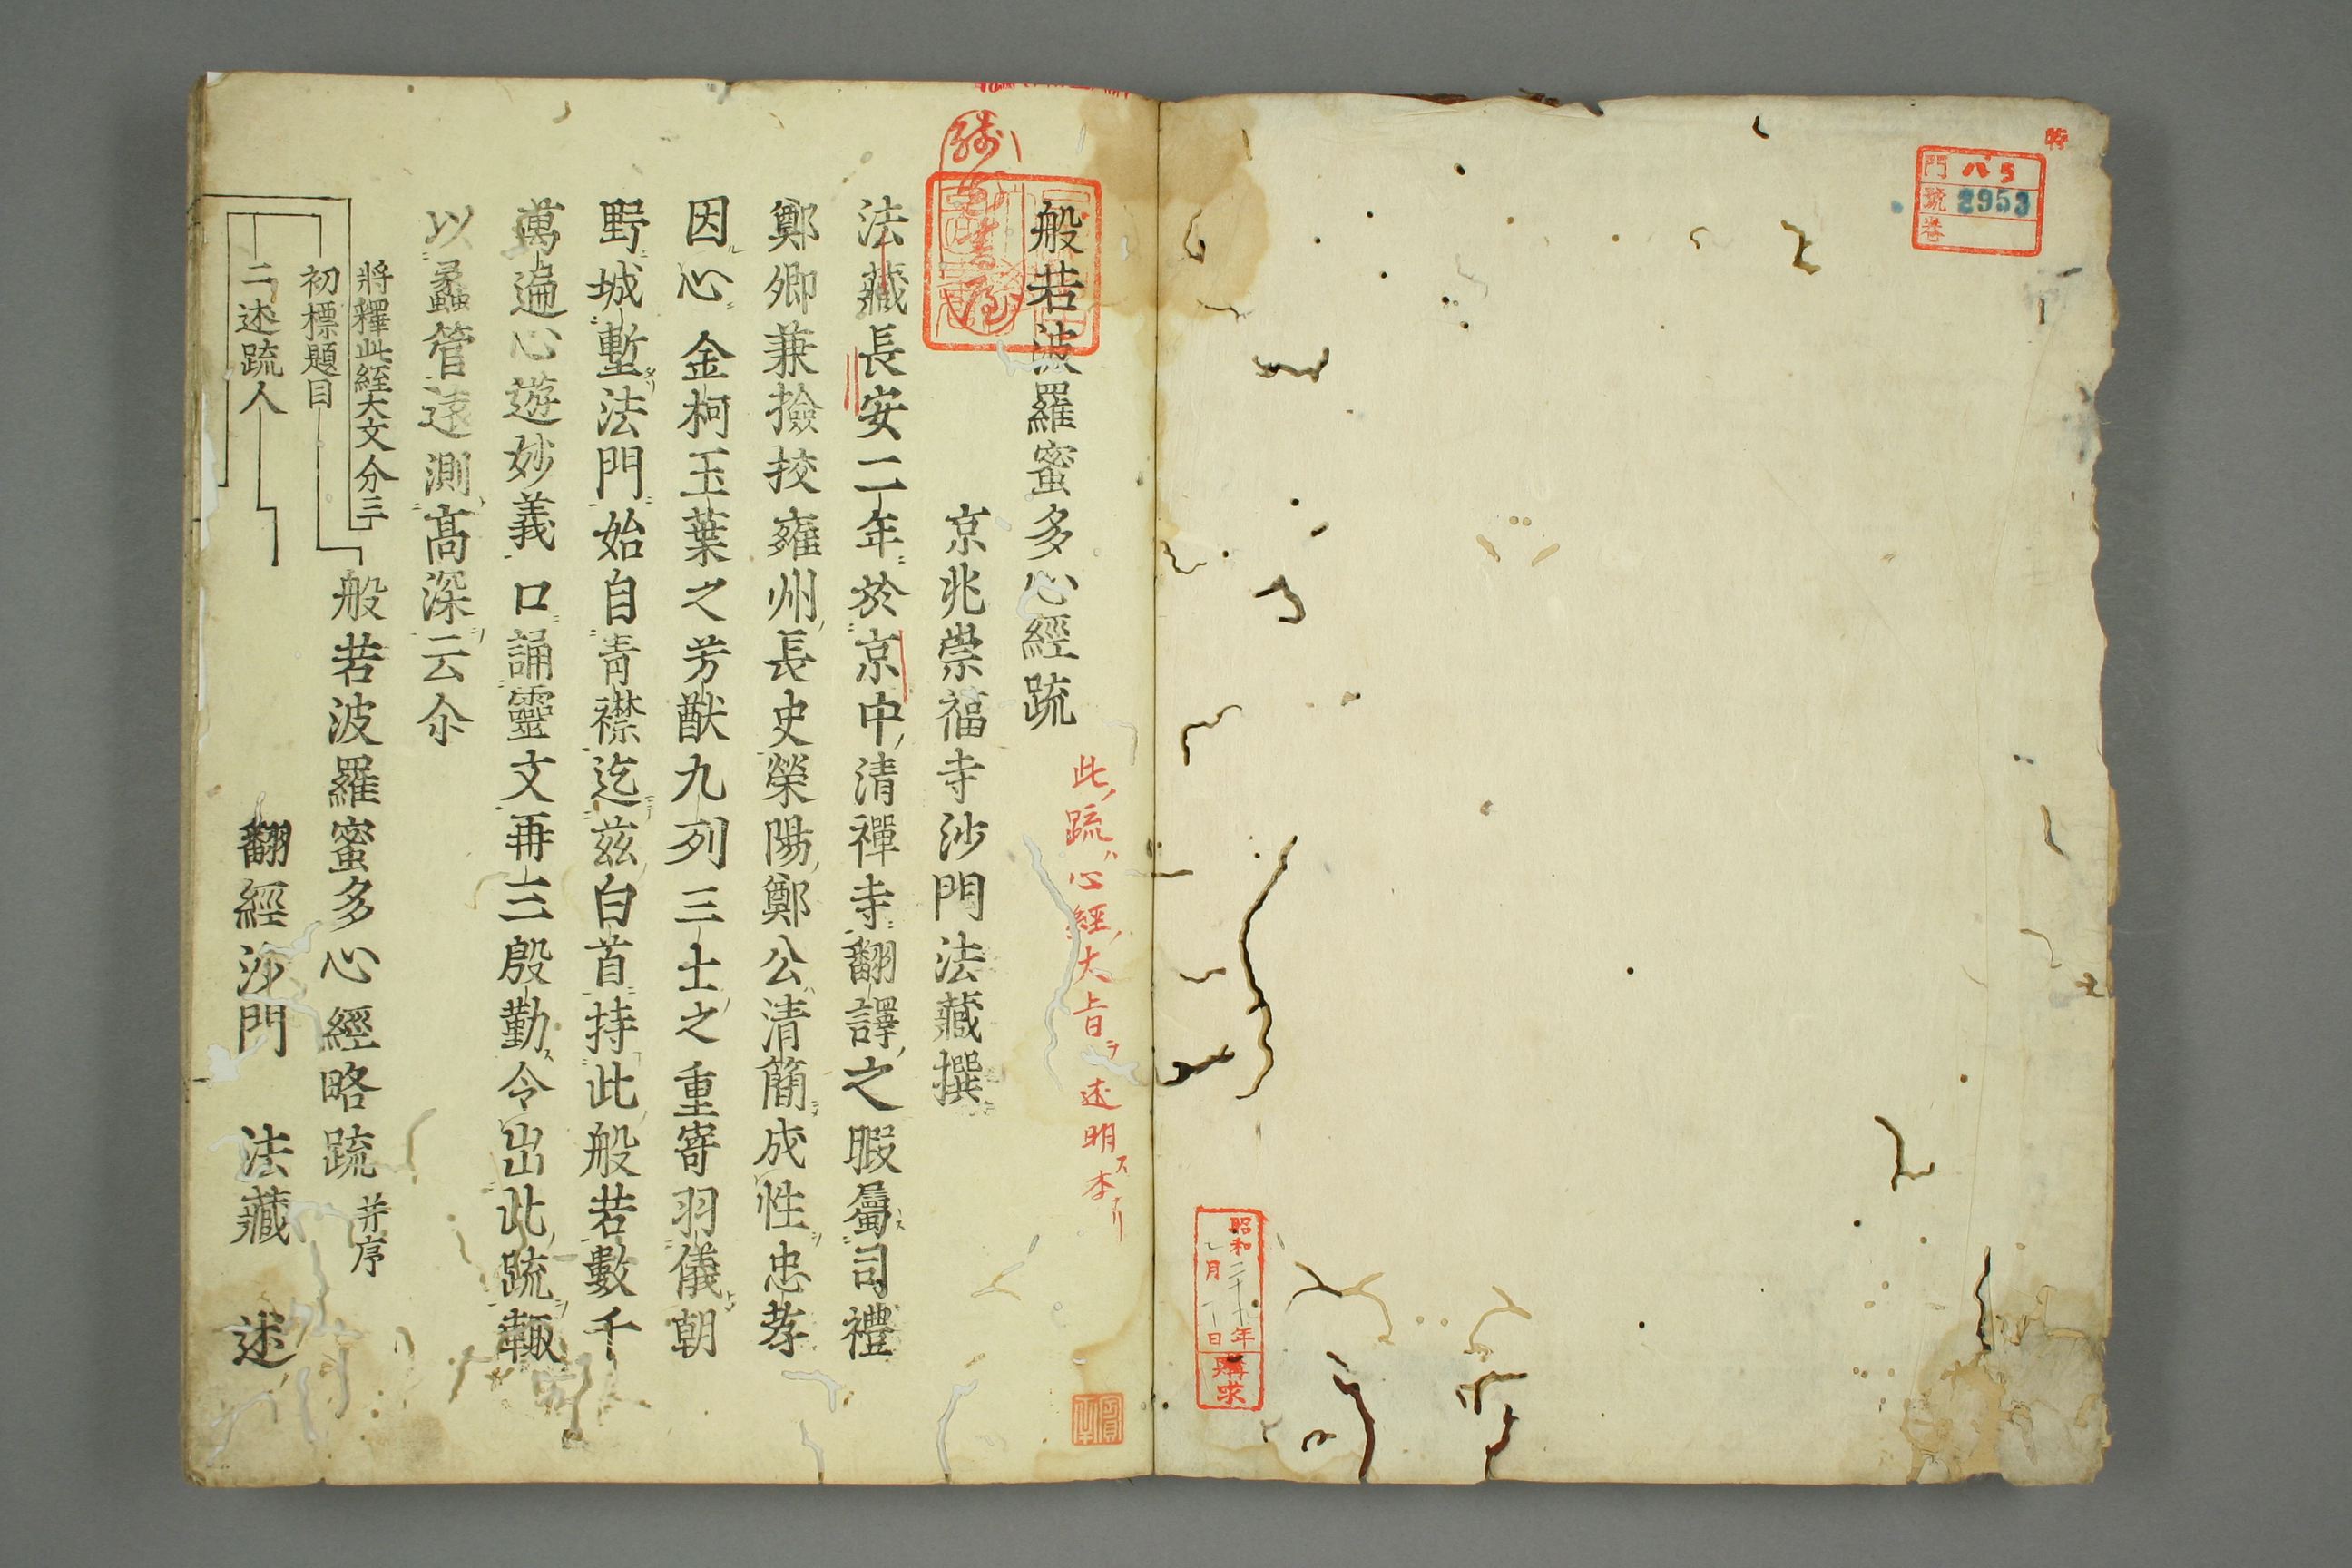 特
門 八5
號 2953
卷
昭和二十九年
月 日
購求
般若波羅蜜多心經疏
此ノ疏ハ心經ノ大旨ヲ述明ス本ナリ
京兆崇福寺沙門法藏撰
法藏長安二年於京中清禪寺翻譯之暇屬司禮
鄭卿兼撿挍雍州長史榮陽鄭公清簡成性忠孝
因心金柯玉葉之芳猷九列三士之重寄羽儀朝
野城塹法門始自青襟迄茲白首持此般若數千
萬遍心遊妙義口誦靈文再三殷勤令出此疏輙
以蠡管遠測髙深云尒
將釋此經大文分三
初標題目
般若波羅蜜多心經略疏 并序
二述疏人
翻經沙門 法藏 述